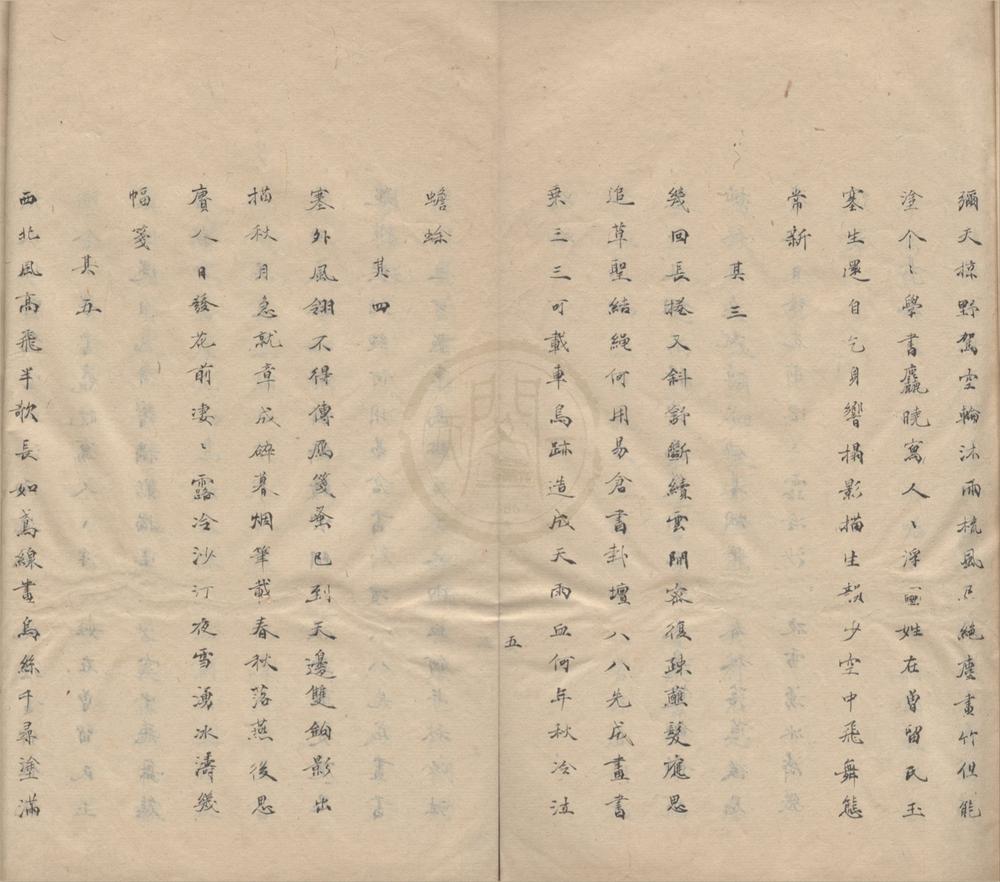 彌天掠野駕空輪沐雨梳風只絕塵畫竹但能
塗个〻學書麤曉寓人〻浮姓在曾留氏玉
塞生還自乞身響搨影描生少空中飛舞態
常新
其三
幾回長捲又斜舒斷續雲開密復疎蘸髮應思
追草聖結繩何用易倉書卦壇八八先成畫書
乘三三可載車鳥跡造成天雨血何年秋冷泣
五
蟾蜍
其四
塞外風翎不得傳雁箋蚤已到天邊雙鉤影出
描秋月急就章成碎暮烟筆載春秋落燕後思
賡人日發花前淒〻露冷沙汀夜雪湧冰濤幾
幅箋
其五
西北風高飛半歌長如鳶線畫烏絲千尋塗滿